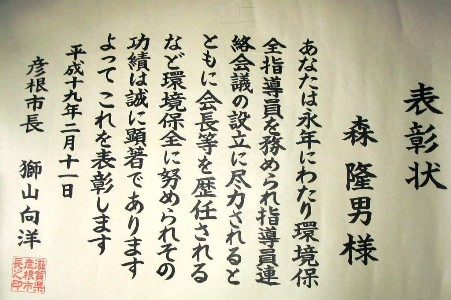 表彰状
森隆男様
あなたは永年にわたり環境保
全指導員を務められ指導員連
絡会議の設立に尽力されると
ともに会長等を歴任される
など環境保全に努められその
功績は誠に顕著であります
よってこれを表彰します
平成十九年二月十一日
彦根市長 獅山向洋
滋賀県
彦根市
長之印